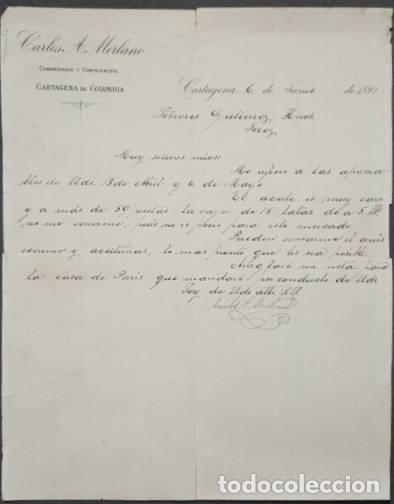 Carlos A. Merlano
COMERCIANTE Y COMISIONISTA
CARTAGENA DE COLOMBIA
Cartagena 6 de Junio de 1891
Señores Gutierrez Hnos.
Jerez
Muy señores mios:
Me refiero a las aprecia
bles de Uds. 13 de Abril y 2 de Mayo
El aceite es muy caro
y a más de 50 pesetas la caja de 15 latas de a 5
no me conviene, pues no es precio para este mercado
Pueden enviarme el anis
comino y aceitunas, lo mas pronto que les sea posible
Arreglaré una nota para
la casa de Paris que mandaré por conducto de Uds
Soy de Uds atto. S.S.
todocoleccion
todocoleccion.net